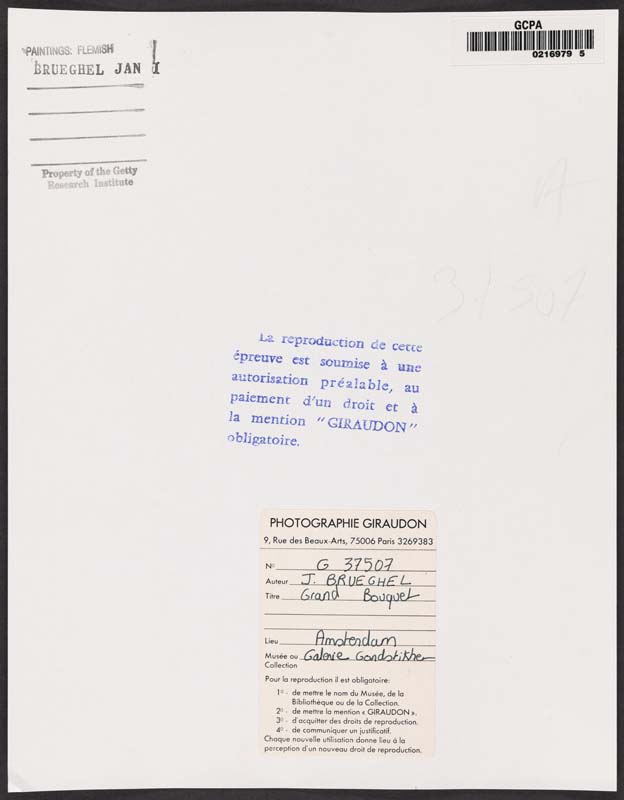 PAINTINGS: FLEMISH
BRUEGHEL JAN I
Property of the Getty
Research Institute
GCPA
0216979 5
La reproduction de cette
épreuve est soumise à une
autorisation préalable, au
paiement d'un droit et à
la mention "GIRAUDON"
obligatoire.
PHOTOGRAPHIE GIRAUDON
9, Rue des Beaux-Arts, 75006 Paris 3269383
No G 37507
Auteur J. BRUEGHEL
Titre Grand Bouquet
Lieu Amsterdam
Musée ou Galerie
Collection
Pour la reproduction il est obligatoire:
1o - de mettre le nom du Musée, de la
Bibliothèque ou de la Collection.
2o - de mettre la mention « GIRAUDON ».
3o - d'acquitter des droits de reproduction.
4o - de communiquer un justificatif.
Chaque nouvelle utilisation donne lieu à la
perception d'un nouveau droit de reproduction.